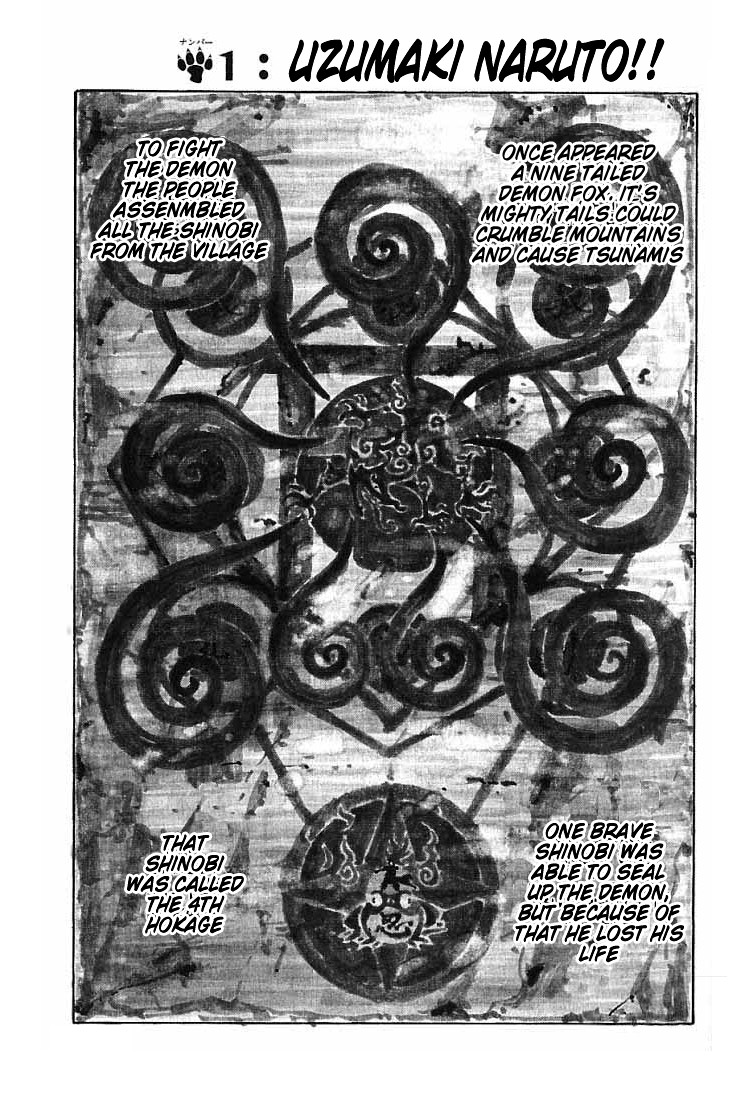 ナンバー
1 : UZUMAKI NARUTO!!
ONCE APPEARED
A NINE TAILED
DEMON FOX. IT'S
MIGHTY TAILS COULD
CRUMBLE MOUNTAINS
AND CAUSE TSUNAMIS
TO FIGHT
THE DEMON
THE PEOPLE
ASSENMBLED
ALL THE SHINOBI
FROM THE VILLAGE
ONE BRAVE
SHINOBI WAS
ABLE TO SEAL
UP THE DEMON,
BUT BECAUSE OF
THAT HE LOST HIS
LIFE
THAT
SHINOBI
WAS CALLED
THE 4TH
HOKAGE
忍